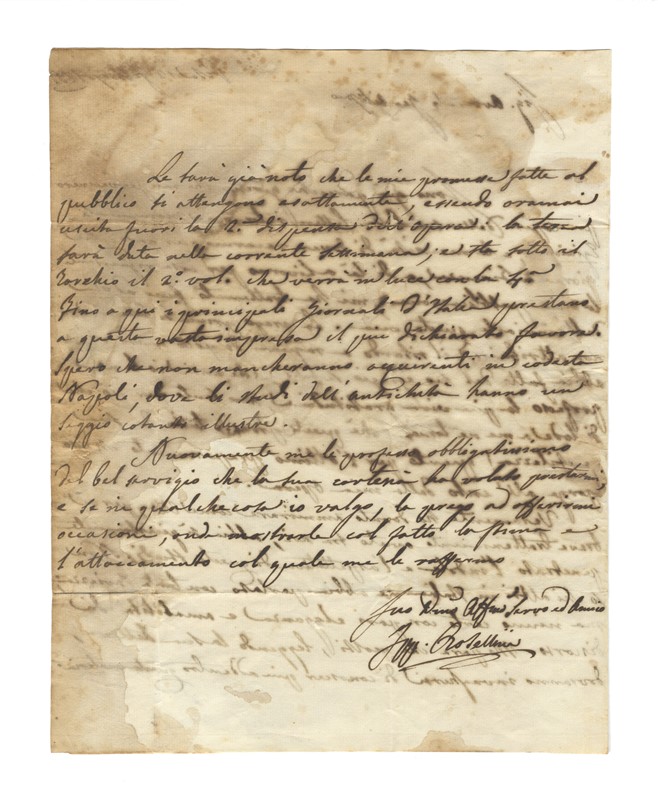 Le sarà già noto che le mie promesse fatte al
pubblico si attengono esattamente, essendo oramai
uscita fuori la 2.a dispensa dell'opera. La terza
sarà data nella corrente settimana; e sta sotto il
torchio il 2.o vol. che verrà in luce con la 4.a
Fino a qui i principali Giornali d'Italia prestano
a questa vasta impresa il più dichiarato favore.
Spero che non mancheranno acquirenti in codesta
Napoli, dove li studi dell'antichità hanno un
seggio cotanto illustre.
Nuovamente me le professo obbligatissimo
del bel servigio che la sua cortesia ha voluto prestarmi,
e se in qualche cosa io valgo, la prego a offerirmi
occasioni, onde mostrarle col fatto la stima e
l'attaccamento col quale me le raffermo
Suo Affmo Servo ed Amico
Ipp. Rosellini